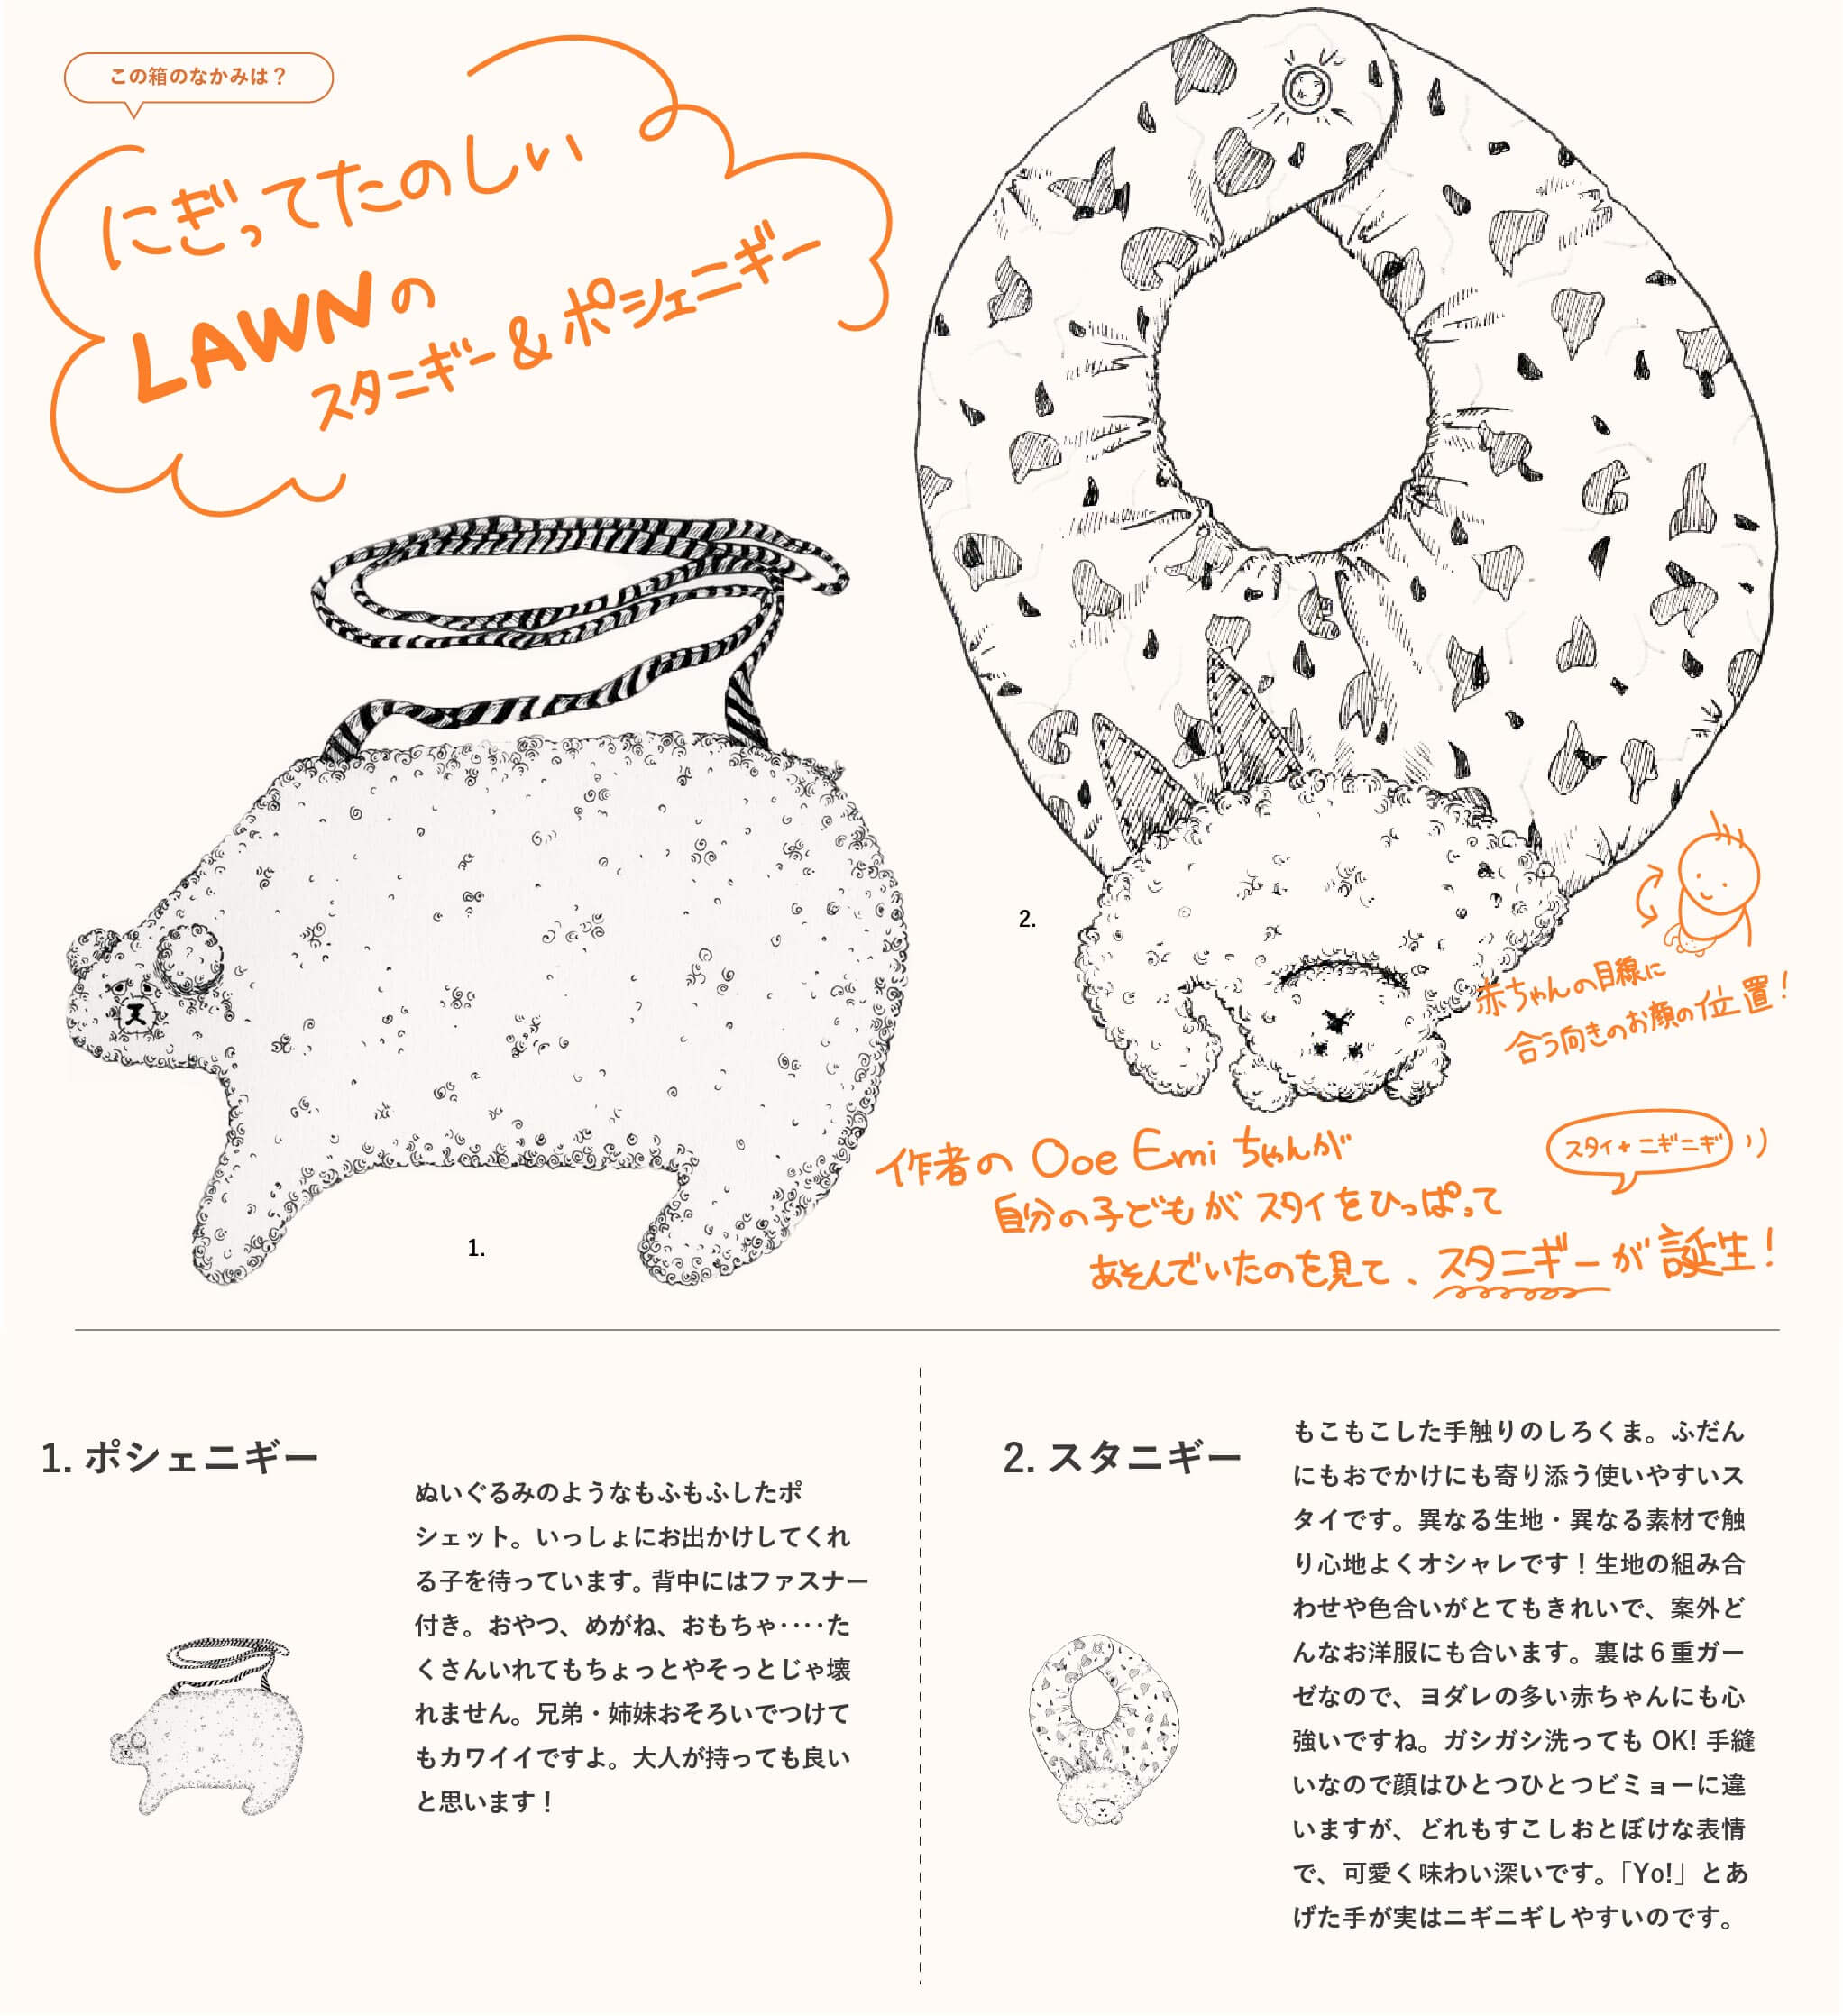 この箱のなかみは？
にぎってたのしい
LAWNの
スタニギー&ポシェニギー
1.
2.
赤ちゃんの目線に
合う向きのお顔の位置！
作者の Ooe Emi ちゃんが
自分の子どもが スタイをひっぱって
あそんでいたのを見て、スタニギーが誕生！
スタイ+ニギニギ
1. ポシェニギー
ぬいぐるみのようなもふもふしたポ
シェット。いっしょにお出かけしてくれ
る子を待っています。背中にはファスナー
付き。おやつ、めがね、おもちゃ‥‥た
くさんいれてもちょっとやそっとじゃ壊
れません。兄弟・姉妹おそろいでつけて
もカワイイですよ。大人が持っても良い
と思います！
2. スタニギー
もこもこした手触りのしろくま。ふだん
にもおでかけにも寄り添う使いやすいス
タイです。異なる生地・異なる素材で触
り心地よくオシャレです！生地の組み合
わせや色合いがとてもきれいで、案外ど
んなお洋服にも合います。裏は６重ガー
ゼなので、ヨダレの多い赤ちゃんにも心
強いですね。ガシガシ洗っても OK! 手縫
いなので顔はひとつひとつビミョーに違
いますが、どれもすこしおとぼけな表情
で、可愛く味わい深いです。「Yo!」とあ
げた手が実はニギニギしやすいのです。